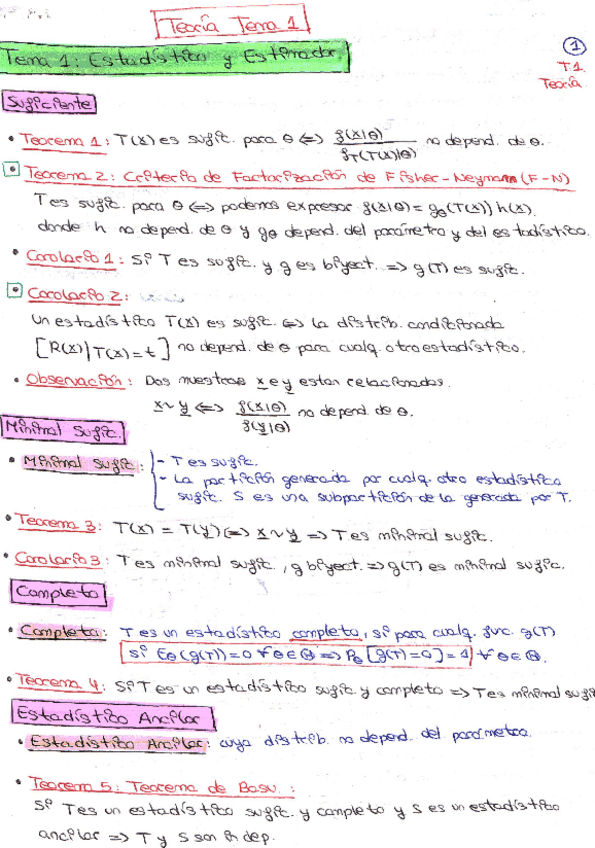 Teoría Tema 1
Tema 1: Estadístico y Estimador
1
T1
Teoría
Suficiente
• Teorema 1: T(x) es sufic. para θ ⇔ f(x|θ) / f_T(T(x)|θ) no depend. de θ.
• Teorema 2: Criterio de Factorización de Fisher-Neymann (F-N)
T es sufic. para θ ⇔ podemos expresar f(x|θ) = g_θ(T(x)) h(x).
donde h no depend. de θ y g_θ depend. del parámetro y del estadístico.
• Corolario 1: Si T es sufic. y g es biyect. ⇒ g(T) es sufic.
• Corolario 2:
un estadístico T(x) es sufic. ⇔ la distrib. condicionada
[R(x)|T(x)=t] no depend. de θ para cualq. otro estadístico.
• Observación: Dos muestras x e y estan relacionadas.
x ~ y ⇔ f(x|θ) / f(y|θ) no depend. de θ.
Minimal sufic.
• Minimal sufic: - T es sufic.
- La partición generada por cualq. otro estadístico
sufic. S es una subpartición de la generada por T.
• Teorema 3: T(x) = T(y) ⇔ x ~ y ⇒ T es minimal sufic.
• Corolario 3: T es minimal sufic., g biyect. ⇒ g(T) es minimal sufic.
Completo
• Completo: T es un estadístico completo, si para cualq. func. g(T)
si E_θ(g(T))=0 ∀θ∈Θ ⇒ P_θ[g(T)=0]=1 ∀θ∈Θ.
• Teorema 4: Si T es un estadístico sufic. y completo ⇒ T es minimal sufi
Estadístico Ancilar
• Estadístico Ancilar: cuya distrib. no depend. del parámetro.
• Teorema 5: Teorema de Basu.:
Si T es un estadístico sufic. y completo y S es un estadístico
ancilar ⇒ T y S son indep.